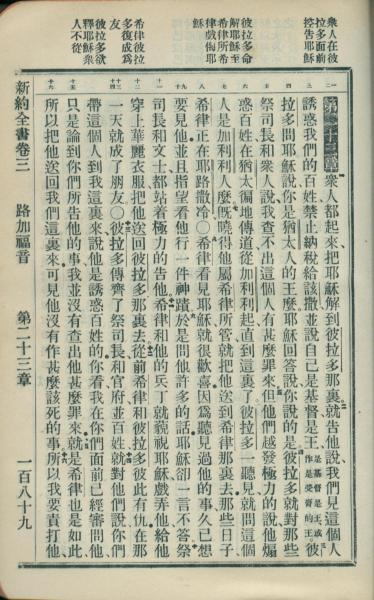 衆人在彼
拉多面前
控告耶穌
彼拉多命
解耶穌至
希律所希
律戲侮耶
穌
希律彼拉
多復成爲
友
彼拉多欲
釋耶穌衆
人不從
第二十三章衆人都起來把耶穌解到彼拉多那裏就告他說我們見這個人
誘惑我們的百姓禁止納稅給該撒並說自己是基督是王是基督是王或作是受膏的王彼
拉多問耶穌說你是猶太人的王麽耶穌回答說你說的是彼拉多就對那些
祭司長和衆人說我查不出這個人有甚麽罪來但他們越發極力的說他煽
惑百姓在猶太徧地傳道從加利利起直到這裏了彼拉多一聽見就問這個
人是加利利人麽旣曉得他屬希律所管就把他送到希律那裏去那些日子
希律正在耶路撒冷○希律看見耶穌就很歡喜因爲聽見過他的事久已想
要見他並且指望看他行一件神蹟於是問他許多的話耶穌卻一言不答祭
司長和文士都站着極力的告他希律和他的兵丁就藐視耶穌戲弄他給他
穿上華麗衣服把他送回彼拉多那裏去從前希律和彼拉多彼此有仇在那
一天就成了朋友○彼拉多傳齊了祭司長和官府並百姓就對他們說你們
帶這個人到我這裏來說他是誘惑百姓的你看我在你們面前已經審問他
只是論到你們所告他的事我並沒有查出他甚麽罪來就是希律也是如此
所以把他送回我們這裏來可見他沒有作甚麽該死的事所以我要責打他
新約全書卷三　路加福音　第二十三章　一百八十九